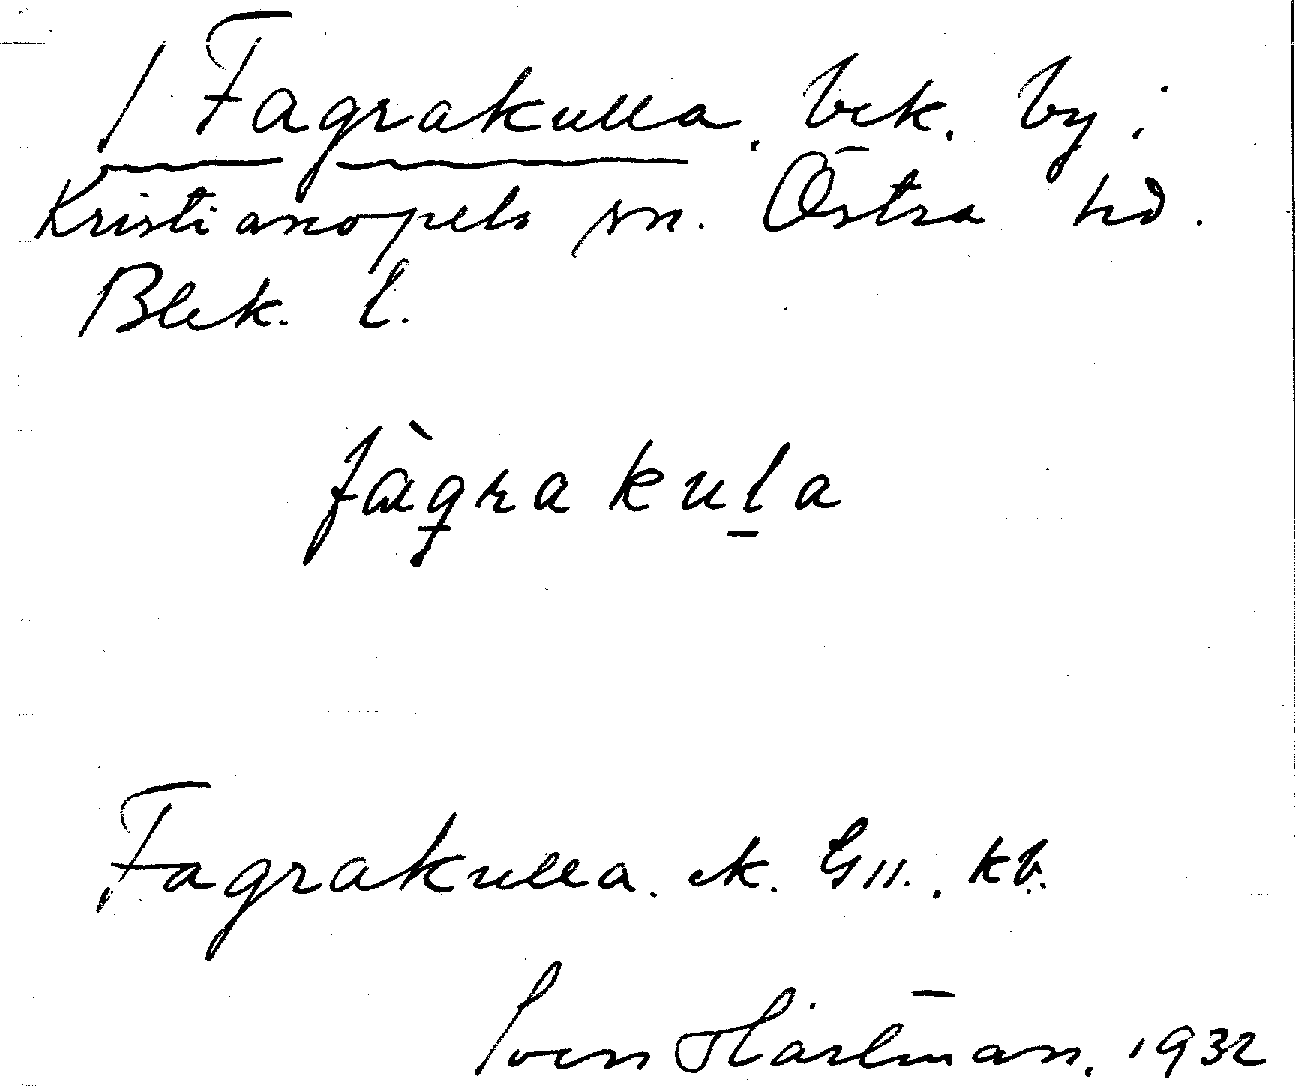 Fagrakulla. bek. by i
Kristianopels sn. Östra hd.
Blek. l.
fàgrakula
Fagrakulla. ek. kb.
Sven Hartman. 1932